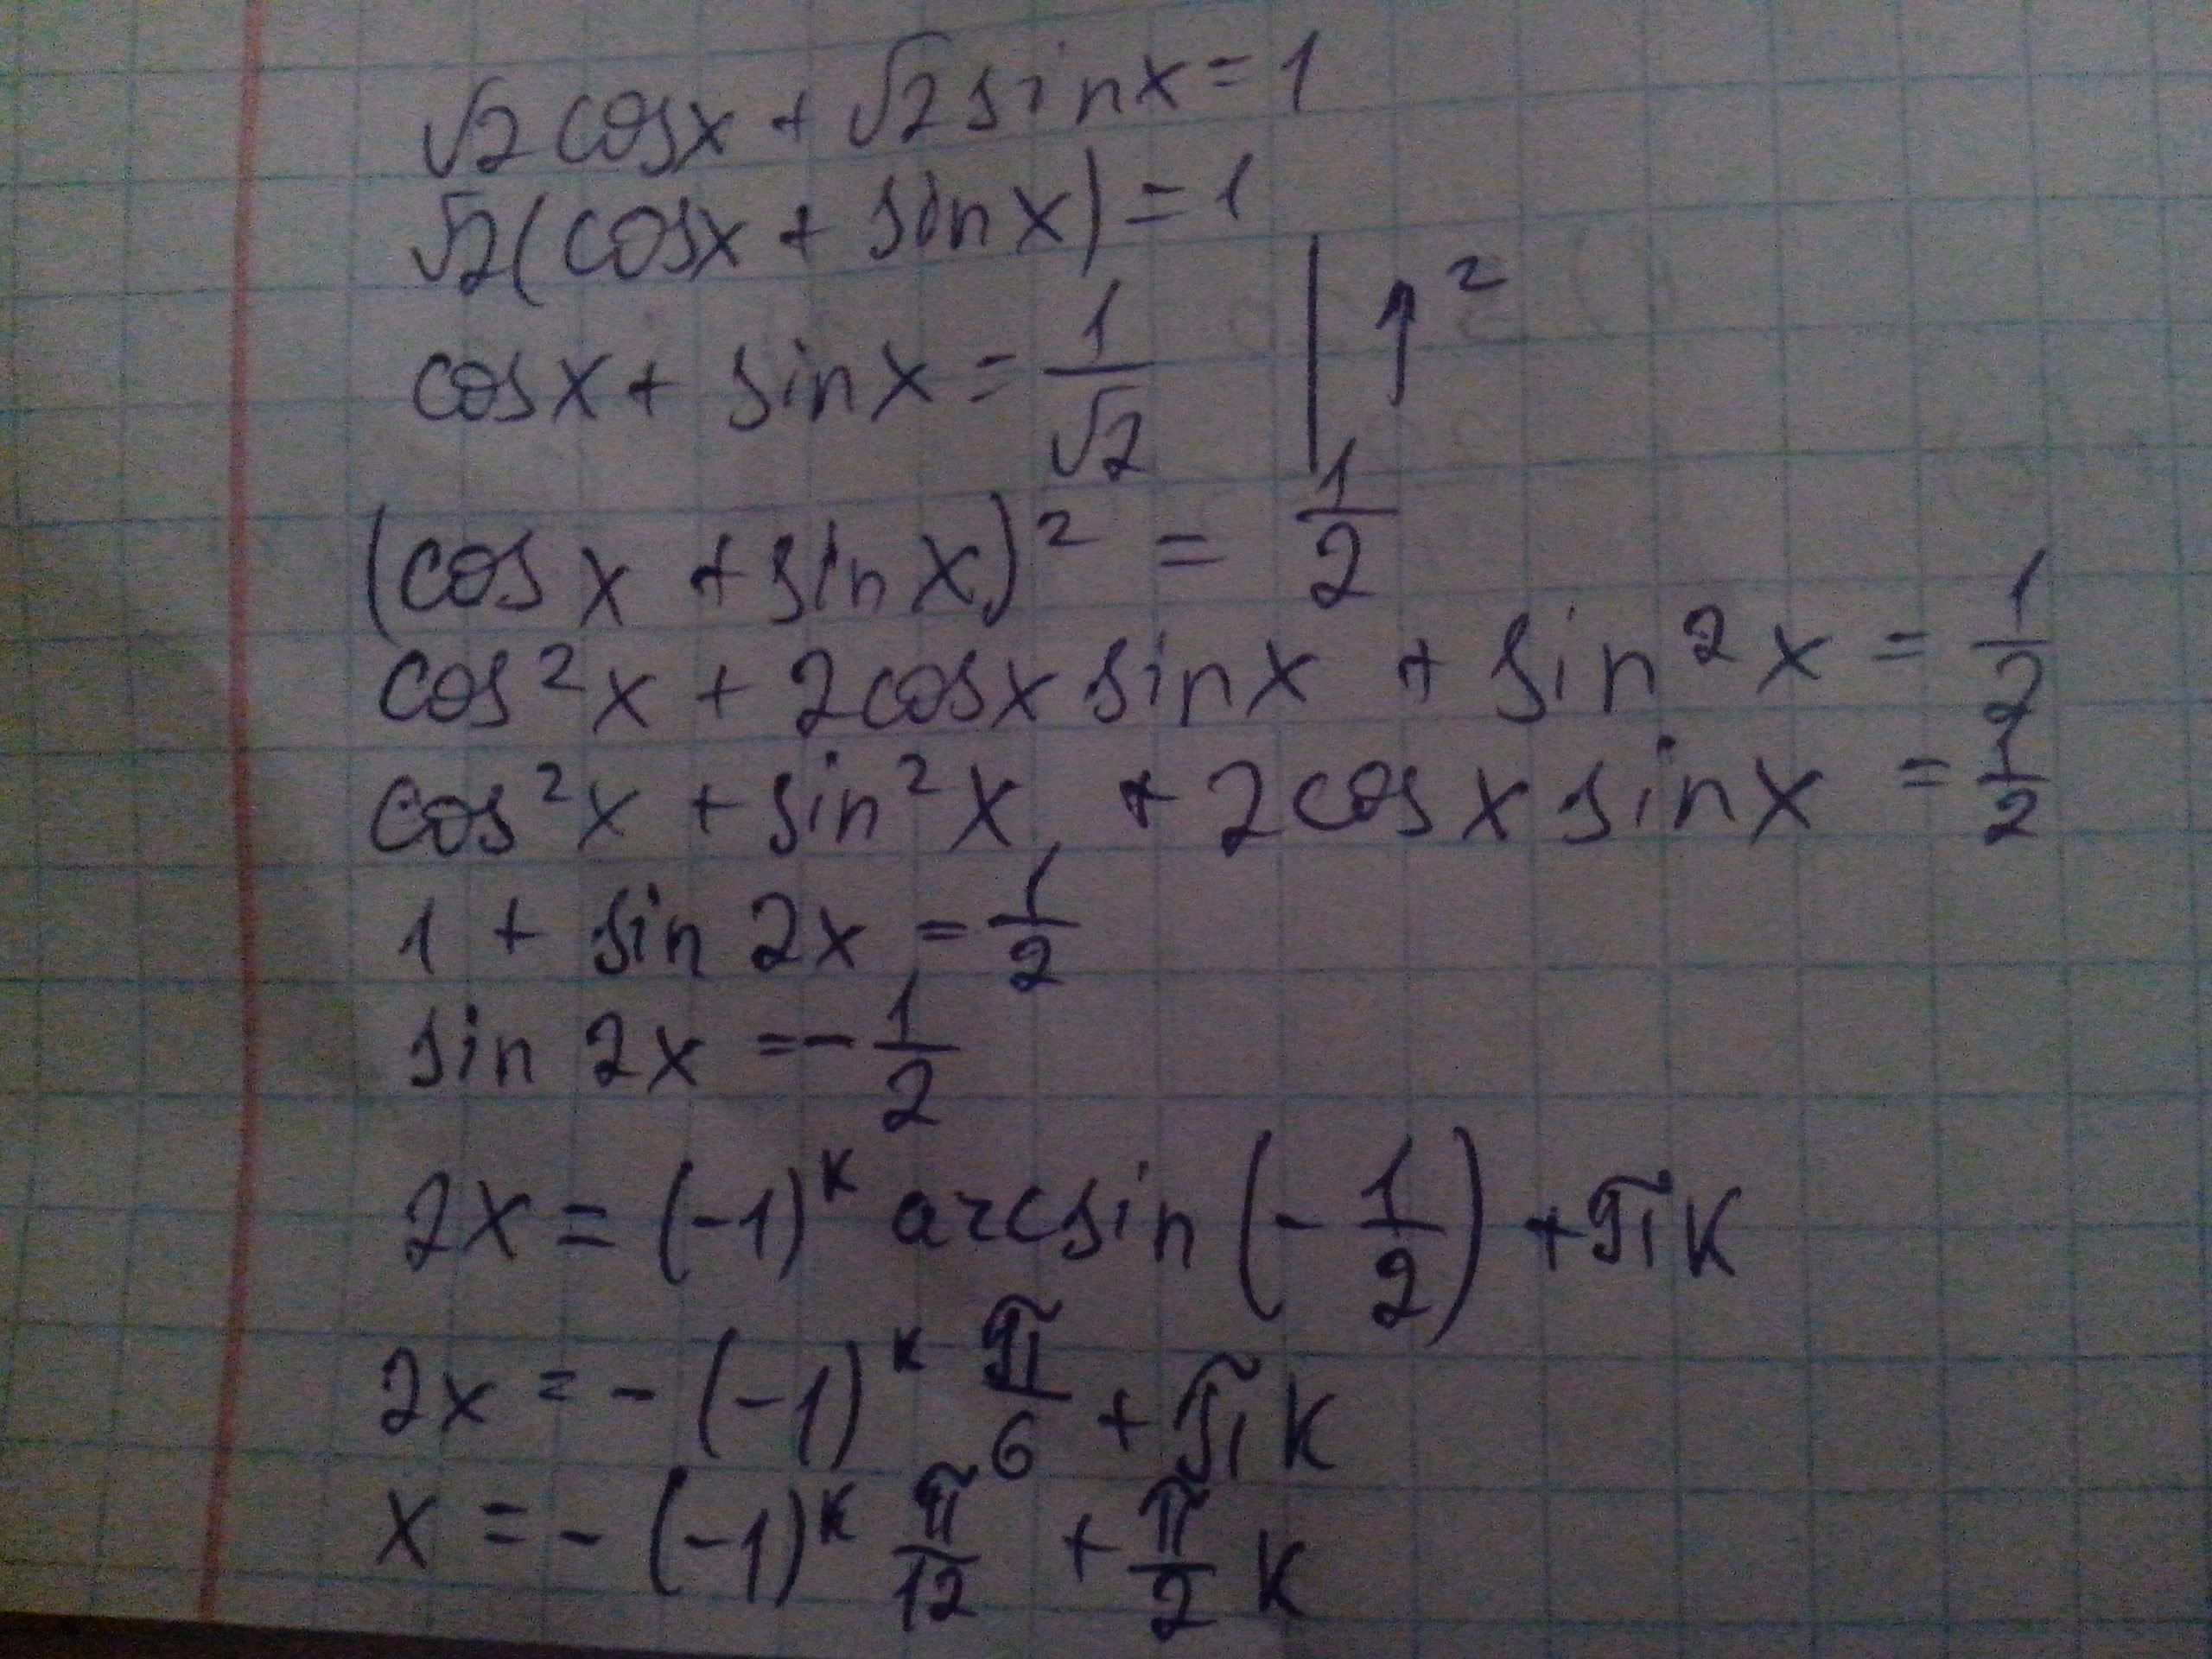 √2 cosx + √2 sinx = 1
√2(cosx + sinx) = 1
cosx + sinx = 1/√2 | ↑²
(cosx + sinx)² = 1/2
cos²x + 2cosx sinx + sin²x = 1/2
cos²x + sin²x + 2cosx sinx = 1/2
1 + sin 2x = 1/2
sin 2x = -1/2
2x = (-1)ᵏ arcsin(-1/2) + πk
2x = -(-1)ᵏ π/6 + πk
x = -(-1)ᵏ π/12 + π/2 k